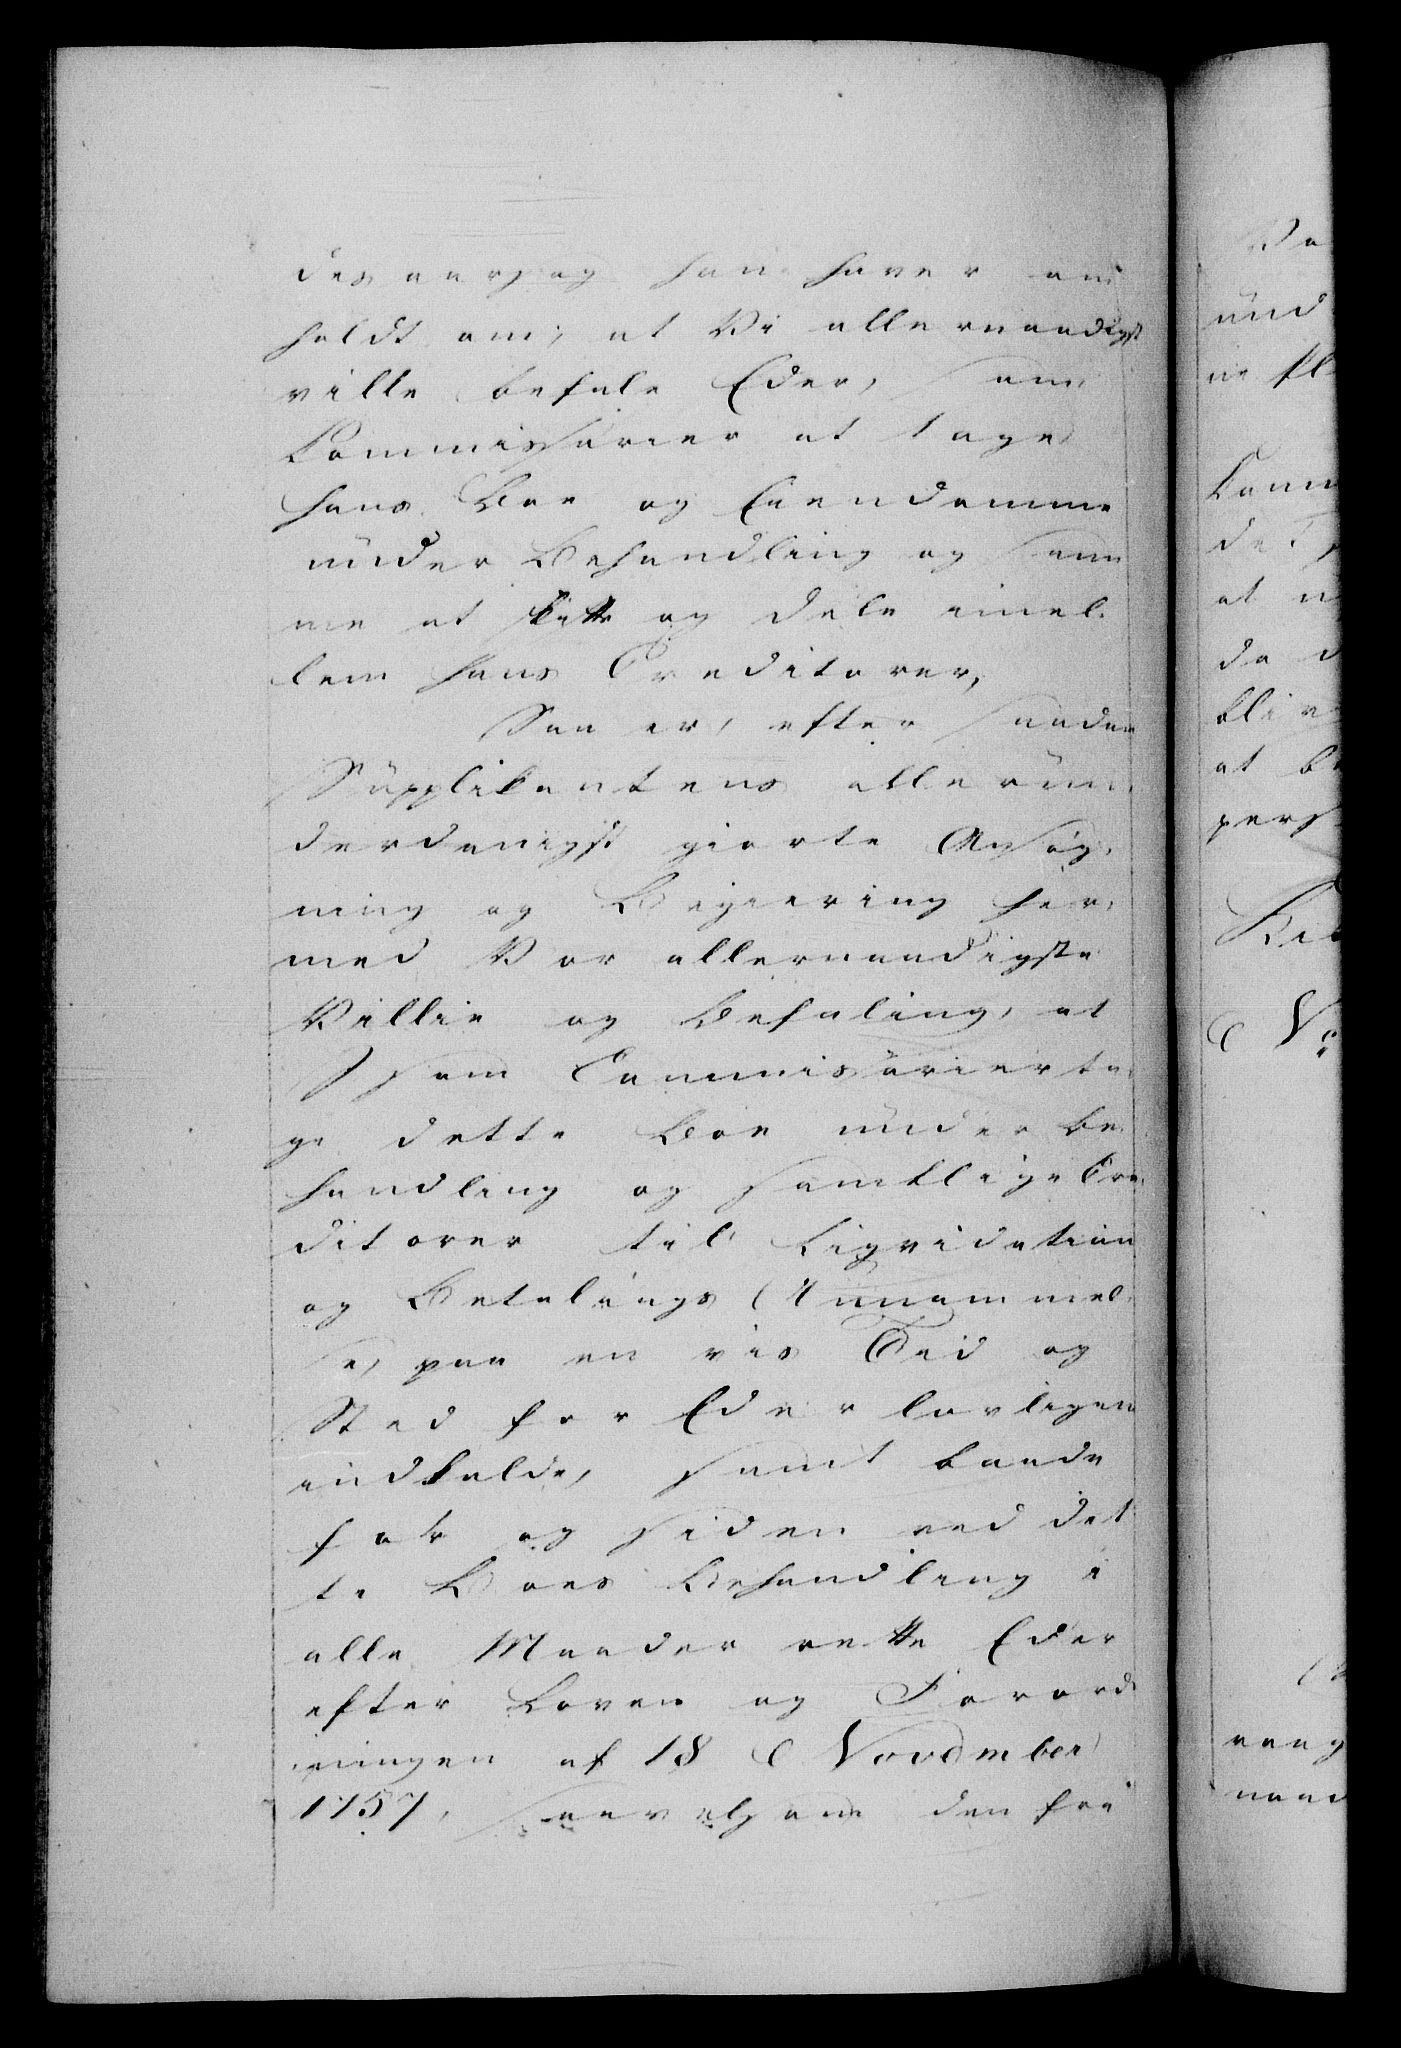 desaarsag han haver an
holdt om, at Vi allernaadigst
ville befale Eder, som
Kommissarier at tage
hans Boe og Eiendomme
under Behandling og sam
me at skifte og dele imel
lem hans Creditorer,
Saa er, efter saadan
Supplikantens allerun
derdanigst giorte Ansøg
ning og Begiering her
med Vor allernaadigste
Villie og Befaling, at
I som Commissarier ta
ge dette Boe under be
handling og samtlige Cre
ditorer til Liqvidation
og Betalings Annammel
se, paa en vis Tid og
Sted for Eder lovligen
indkalde, samt baade
før og siden ved det
te Boes Behandling i
alle Maader rette Eder
efter Loven og Forord
ningen af 18 November
1757, saavelsom den fri
Va
und
Komm
det
at
da
bliv
at be
pers
No
naad